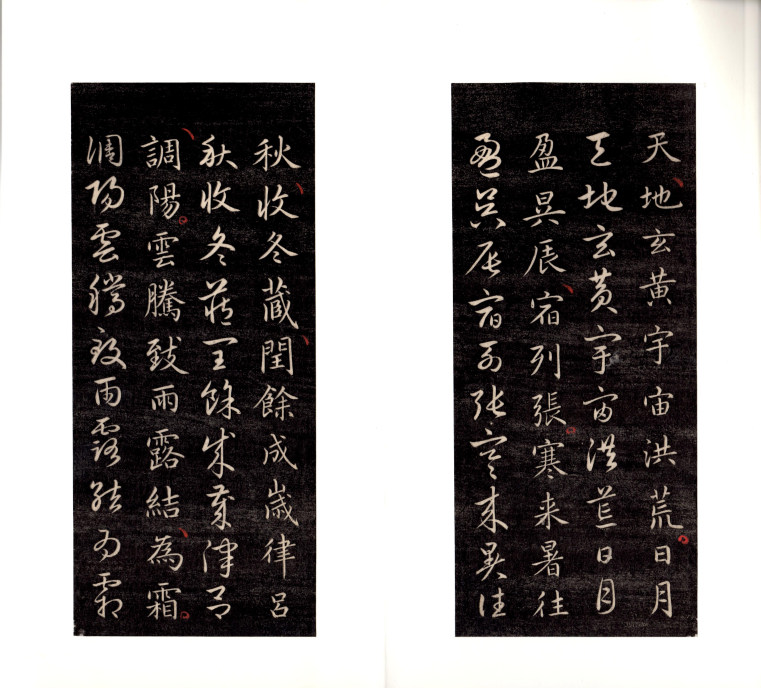 天地玄黃宇宙洪荒日月
天地玄黃宇宙洪荒日月
盈昃辰宿列張寒来暑往
盈昃辰宿列張寒来暑往
秋收冬蔵閏餘成歲律呂
秋收冬蔵閏餘成歲律呂
調陽雲騰致雨露結為霜
調陽雲騰致雨露結為霜